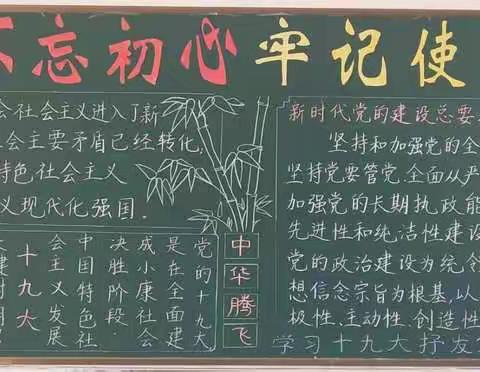 不忘初心 牢记使
社会主义进入了新
会主要矛盾已经转化,
特色社会主义
义现代化强国.
党的十九大
是在全面建
成小康社会
决胜阶段.
中国特色社
会主义发展
十九大
中华腾飞
新时代党的建设总要
坚持和加强党的全
坚持党要管党、全面从严
加强党的长期执政能
先进性和纯洁性建设
党的政治建设为统领
想信念宗旨为根基,以
极性、主动性、创造性
学习十九大 抒发